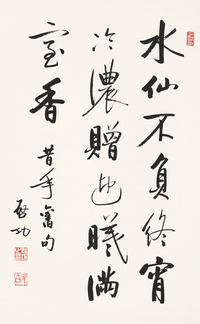 水仙不負終宵
冷濃贈迎曦滿
室香 昔年舊句
啓功